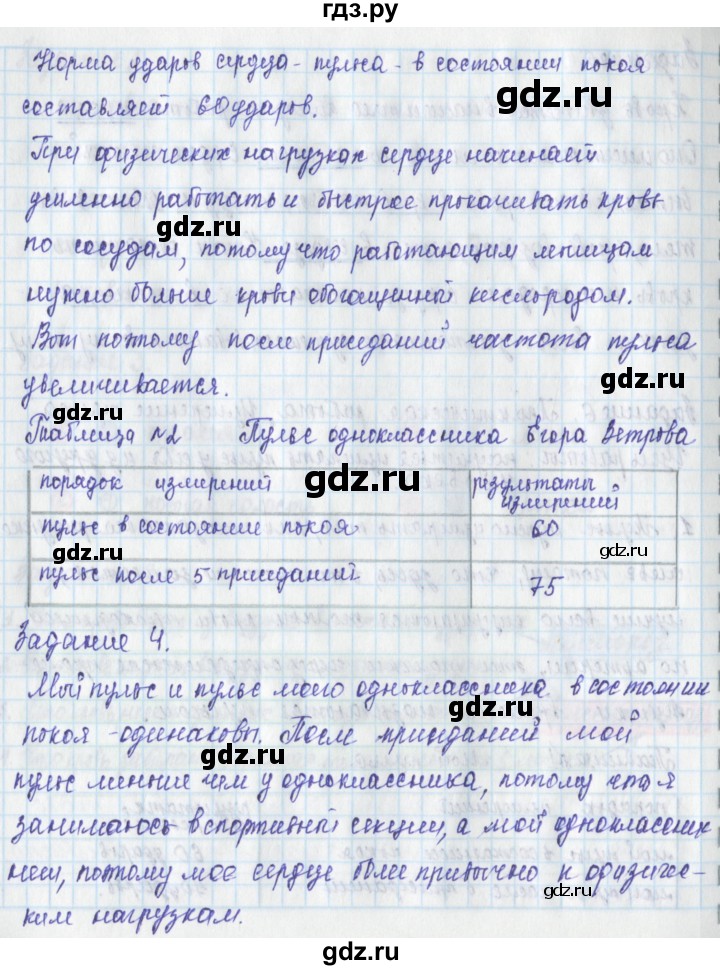 гдз.ру
Норма ударов сердца - пульса - в состоянии покоя
составляет 60 ударов.
gdz.ru
При физических нагрузках сердце начинает
усиленно работать и быстрее прокачивать кровь
gdz.ru
по сосудам, потому что работающим мышцам
нужно больше крови обогащенной кислородом.
Вот поэтому после приседаний частота пульса
gdz.ru
увеличивается.
gdz.ru
Таблица №2 Пульс одноклассника Егора Ветрова
порядок измерений результаты измерений
gdz.ru
пульс в состояние покоя 60
gdz.ru
gdz.ru
пульс после 5 приседаний 75
gdz.ru
Задание 4.
gdz.ru
Мой пульс и пульс моего одноклассника в состоянии
покоя - одинаковы. После приседаний мой
gdz.ru
пульс меньше чем у одноклассника, потому что я
занимаюсь в спортивной секции, а мой одноклассник
gdz.ru
нет, потому мое сердце более привычно к физичес-
ким нагрузкам.
gdz.ru
gdz.ru